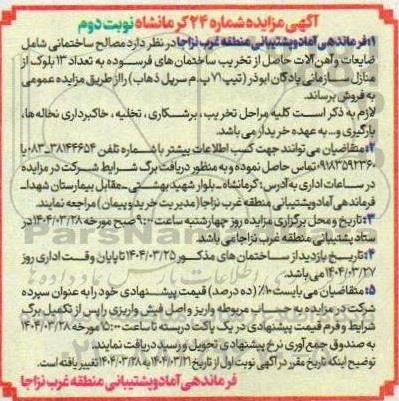 آگهی مزایده شماره ۲۴ کرمانشاه نوبت دوم
۱: فرماندهی آماد و پشتیبانی منطقه غرب نزاجا در نظر دارد مصالح ساختمانی شامل
ضایعات و آهن آلات حاصل از تخریب ساختمان های فرسوده به تعداد ۱۳ بلوک از
منازل سازمانی پادگان ابوذر (تیپ ۷۱ پ.م سرپل ذهاب) را از طریق مزایده عمومی
به فروش برساند.
لازم به ذکر است کلیه مراحل تخریب، برشکاری، تخلیه، خاکبرداری نخاله ها،
بارگیری و... به عهده خریدار می باشد.
۲: متقاضیان می توانند جهت کسب اطلاعات بیشتر با شماره تلفن ۳۸۱۴۴۶۵۴-۰۸۳ یا
۰۹۱۸۳۵۹۲۳۶۰ تماس حاصل نموده و به منظور دریافت برگ شرایط شرکت در مزایده
در ساعات اداری به آدرس: کرمانشاه ـ بلوار شهید بهشتی ـ مقابل بیمارستان شهدا ـ
فرماندهی آماد و پشتیبانی منطقه غرب نزاجا (مدیریت خرید و پیمان) مراجعه نمایند.
۳: تاریخ و محل برگزاری مزایده روز چهارشنبه ساعت ۹:۰۰ صبح مورخه ۱۴۰۴/۰۳/۲۸ در
ستاد پشتیبانی منطقه غرب نزاجا می باشد.
۴: تاریخ بازدید از ساختمان های مذکور ۱۴۰۴/۰۳/۲۵ تا پایان وقت اداری روز
۱۴۰۴/۰۳/۲۷ می باشد.
۵: متقاضیان می بایست ۱۰٪ (ده درصد) قیمت پیشنهادی خود را به عنوان سپرده
شرکت در مزایده به حساب مربوطه واریز و اصل فیش واریزی را پس از تکمیل برگ
شرایط و فرم قیمت پیشنهادی در یک پاکت دربسته تا ساعت ۱۵:۰۰ مورخه ۱۴۰۴/۰۳/۲۸
به صندوق جمع آوری نرخ پیشنهادی تحویل و رسید دریافت نمایند.
توضیح اینکه تاریخ مقرر در آگهی نوبت اول از تاریخ ۱۴۰۴/۰۳/۲۱ به ۱۴۰۴/۰۳/۲۸ تغییر یافته است.
فرماندهی آماد و پشتیبانی منطقه غرب نزاجا